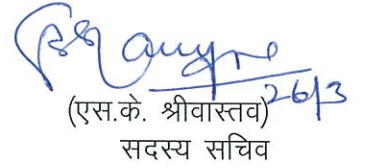 26/3
(एस.के. श्रीवास्तव)
सदस्य सचिव